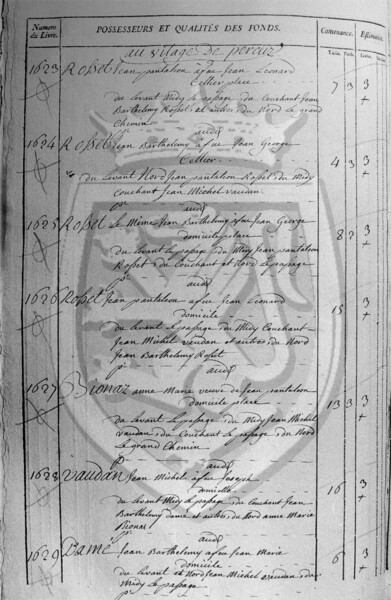 Numero du Livre. POSSESSEURS ET QUALITÉS DES FONDS. Contenance. Estime
au village de perouz
1623 Rosset Jean pantaleon àfeu Jean Leonard
Cellier place 7 3 3
du Levant Midy Le passage du Couchant Jean
Barthelemy Rosset et autres du Nord Le grand
Chemin
audit
1624 Rosset Jean Barthelemy àfeu Jean George
Cellier 4 3 3
du Levant Nord Jean pantaleon Rosset du Midy
Couchant Jean Michel vaudan
audit
1625 Rosset Le Même Jean Barthelemy àfeu Jean George
domicile place 8 2 3
du Levant Le passage du Midy Jean pantaleon
Rosset du Couchant et Nord Le passage
audit
1626 Rosset Jean pantaleon àfeu Jean Leonard
domicile 15 3
du Levant Le passage du Midy Couchant
Jean Michel vaudan et autres du Nord
Jean Barthelemy Rosset
audit
1627 Bionaz anne Marie veuve de Jean pantaleon
domicile place 13 3 3
du Levant Le passage du Midy Jean Michel
vaudan du Couchant Le passage du Nord
Le grand Chemin
audit
1628 vaudan Jean Michel àfeu Joseph
domicile 16 3
du Levant Midy Le passage du Couchant Jean
Barthelemy Dame et autres du Nord anne Marie
Bionaz
audit
1629 Dame Jean Barthelemy àfeu Jean Marie
domicile 6 3
du Levant et Nord Jean Michel vaudan du
Midy Le passage